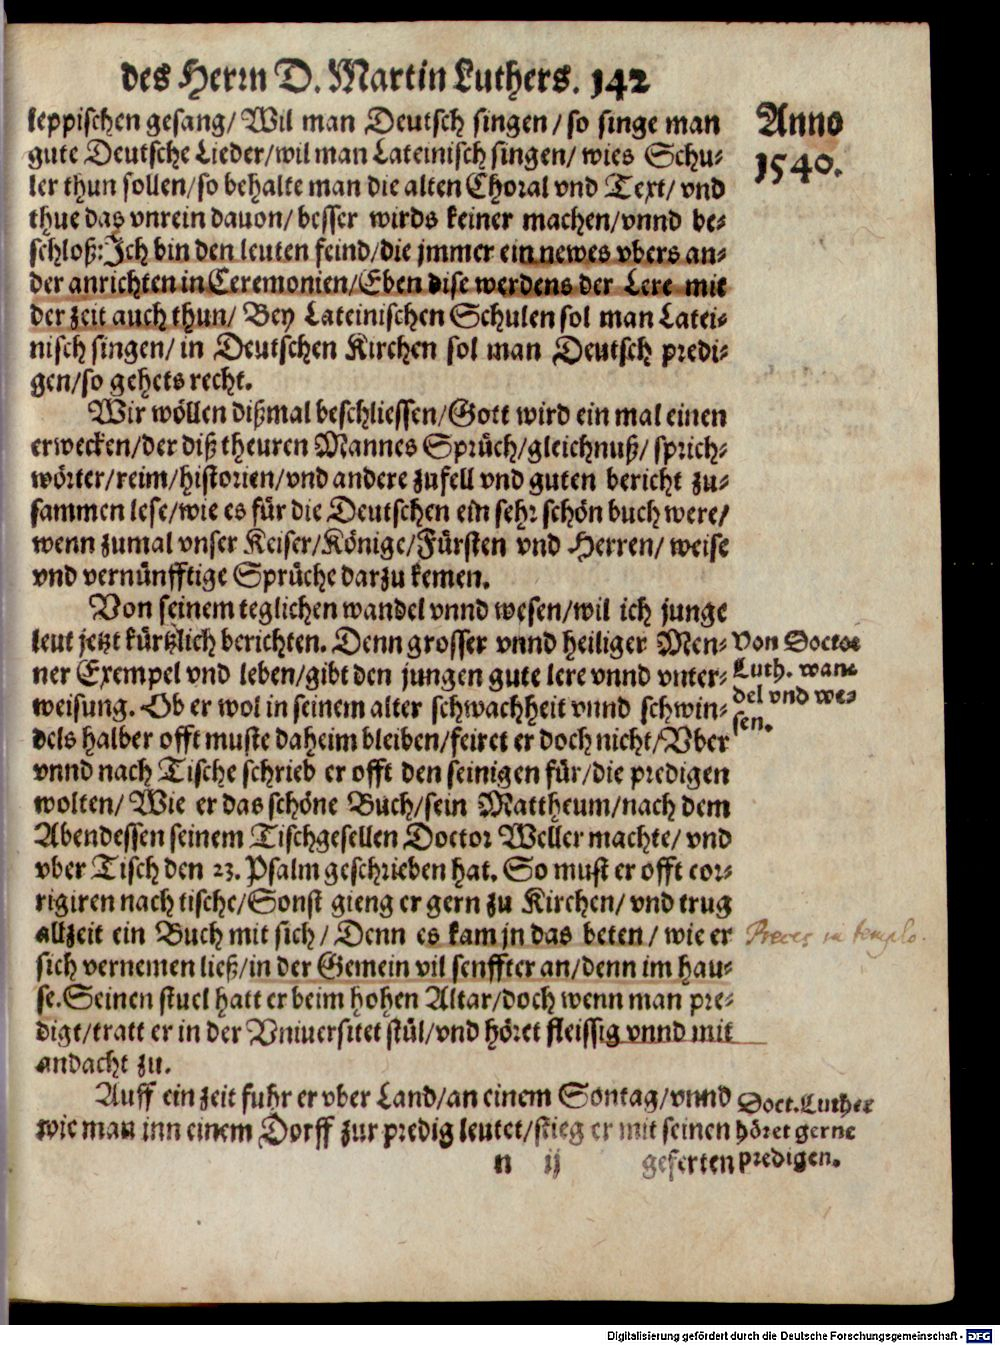 des Herrn D. Martin Luthers. 142
Anno
1540.
leppischen gesang/ Wil man Deutsch singen/ so singe man
gute Deutsche Lieder/wil man Lateinisch singen/ wies Schu-
ler thun sollen/so behalte man die alten Choral vnd Text/ vnd
thue das vnrein dauon/ besser wirds keiner machen/vnnd be-
schloß: Ich bin den leuten feind/die jmmer ein newes vbers an-
der anrichten in Ceremonien/Eben dise werdens der Lere mit
der zeit auch thun/ Bey Lateinischen Schulen sol man Latei-
nisch singen/ in Deutschen Kirchen sol man Deutsch predi-
gen/so gehets recht.
Wir wöllen dißmal beschliessen/Gott wird ein mal einen
erwecken/der diß theuren Mannes Sprüch/gleichnuß/ sprich-
wörter/reim/historien/vnd andere zufell vnd guten bericht zu-
sammen lese/wie es für die Deutschen ein sehr schön buch were/
wenn zumal vnser Keiser/Könige/Fürsten vnd Herren/ weise
vnd vernünfftige Sprüche darzu kemen.
Von seinem teglichen wandel vnnd wesen/wil ich junge
leut jetzt kürtzlich berichten. Denn grosser vnnd heiliger Men-
ner Exempel vnd leben/gibt den jungen gute lere vnnd vnter-
weisung. Ob er wol in seinem alter schwachheit vnnd schwin-
dels halber offt muste daheim bleiben/feiret er doch nicht/Vber
vnnd nach Tische schrieb er offt den seinigen für/die predigen
wolten/ Wie er das schöne Buch/sein Mattheum/nach dem
Abendessen seinem Tischgesellen Doctor Weller machte/ vnd
vber Tisch den 23. Psalm geschrieben hat. So must er offt cor-
rigiren nach tische/Sonst gieng er gern zu Kirchen/ vnd trug
allzeit ein Buch mit sich/ Denn es kam jn das beten/ wie er
sich vernemen ließ/in der Gemein vil senffter an/denn im hau-
se. Seinen stuel hatt er beim hohen Altar/doch wenn man pre-
digt/tratt er in der Vniuersitet stül/vnd höret fleissig vnnd mit
andacht zu.
Auff ein zeit fuhr er vber Land/an einem Sontag/vnnd
wie man inn einem Dorff zur predig leutet/stieg er mit seinen
n ij geferten
Von Doctor
Luth. wan-
del vnd we-
sen.
Preces in templo.
Doct. Luther
höret gerne
predigen.
Digitalisierung gefördert durch die Deutsche Forschungsgemeinschaft - DFG